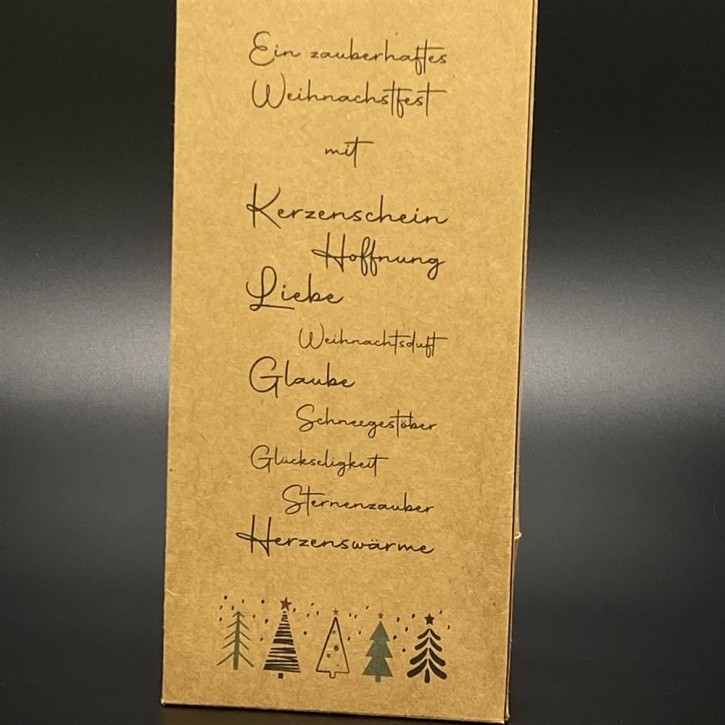 Ein zauberhaftes
Weihnachstfest
mit
Kerzenschein
Hoffnung
Liebe
Weihnachtsduft
Glaube
Schneegestöber
Glückseligkeit
Sternenzauber
Herzenswärme